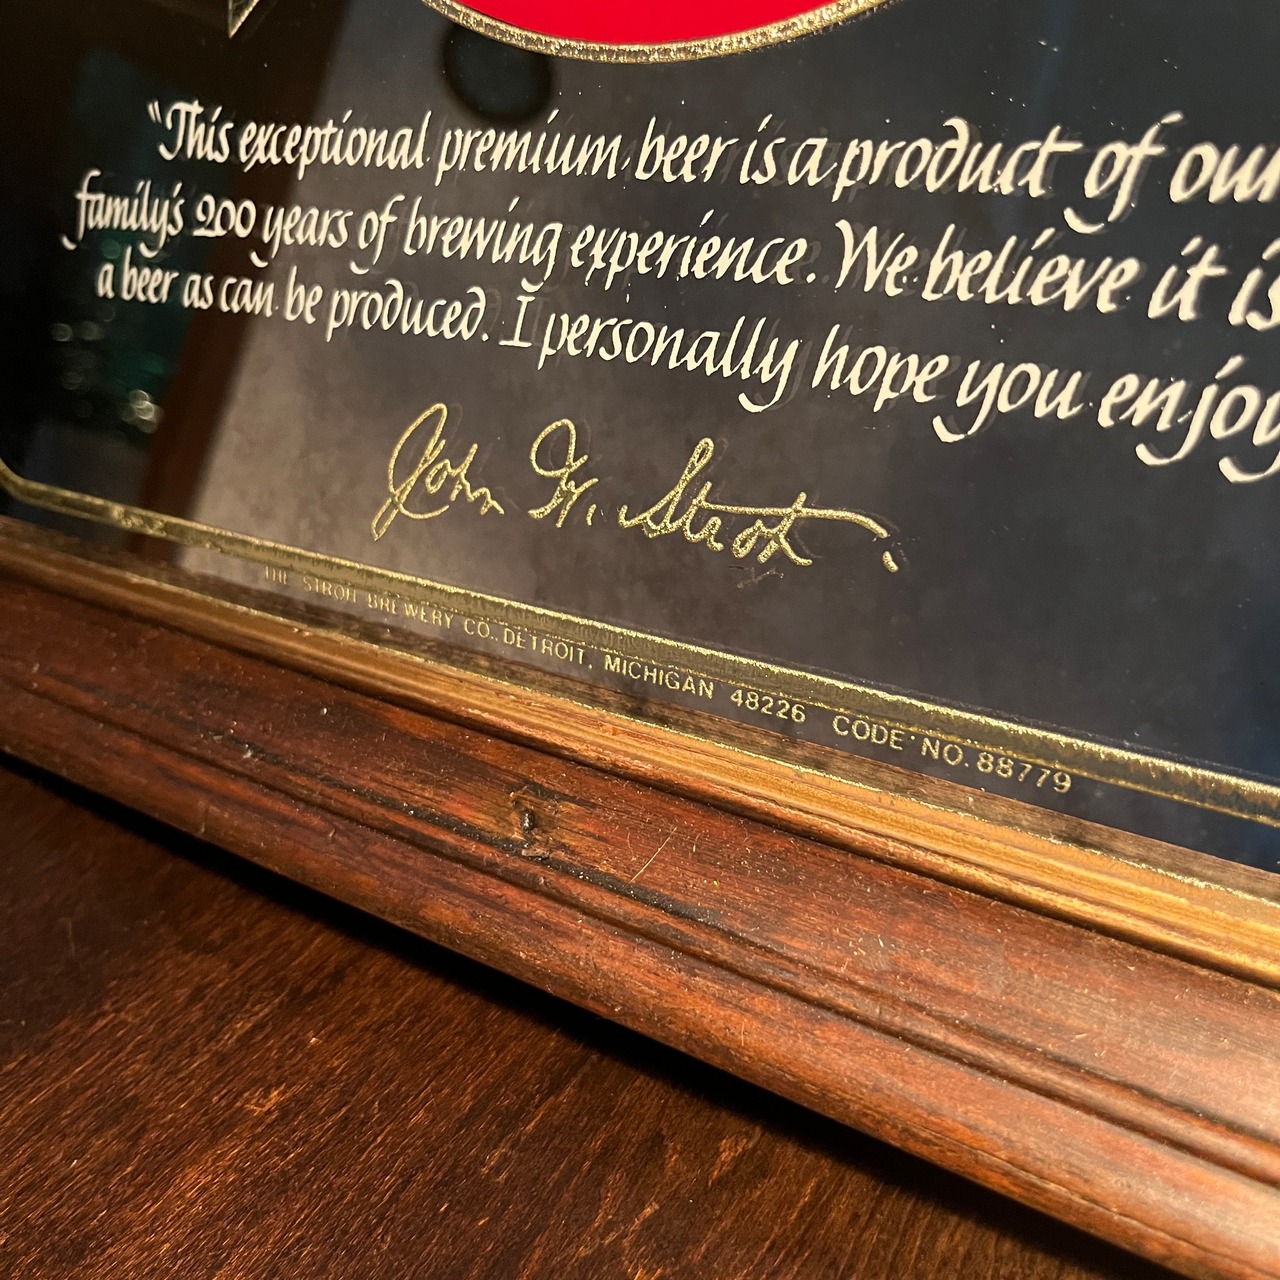 "This exceptional premium beer is a product of our
family's 200 years of brewing experience. We believe it is
a beer as can be produced. I personally hope you enjoy
John W. Stroh
THE STROH BREWERY CO. DETROIT, MICHIGAN 48226 CODE NO. 88779